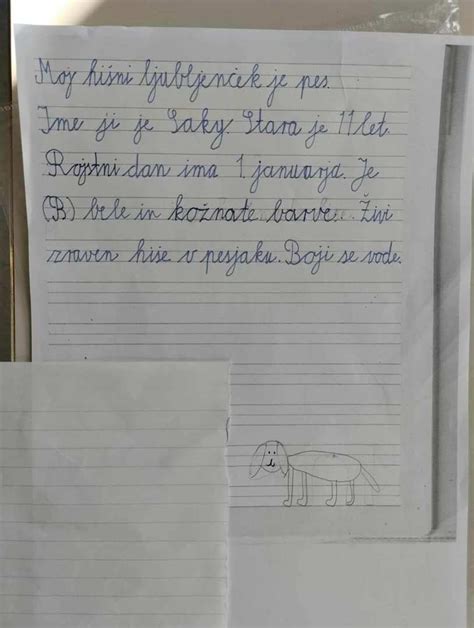 Moj hišni ljubljenček je pes.
Ime ji je Laky. Stara je 11 let.
Rojstni dan ima 1. januarja. Je
(B) bele in kožnate barve. Živi
zraven hiše v pesjaku. Boji se vode.